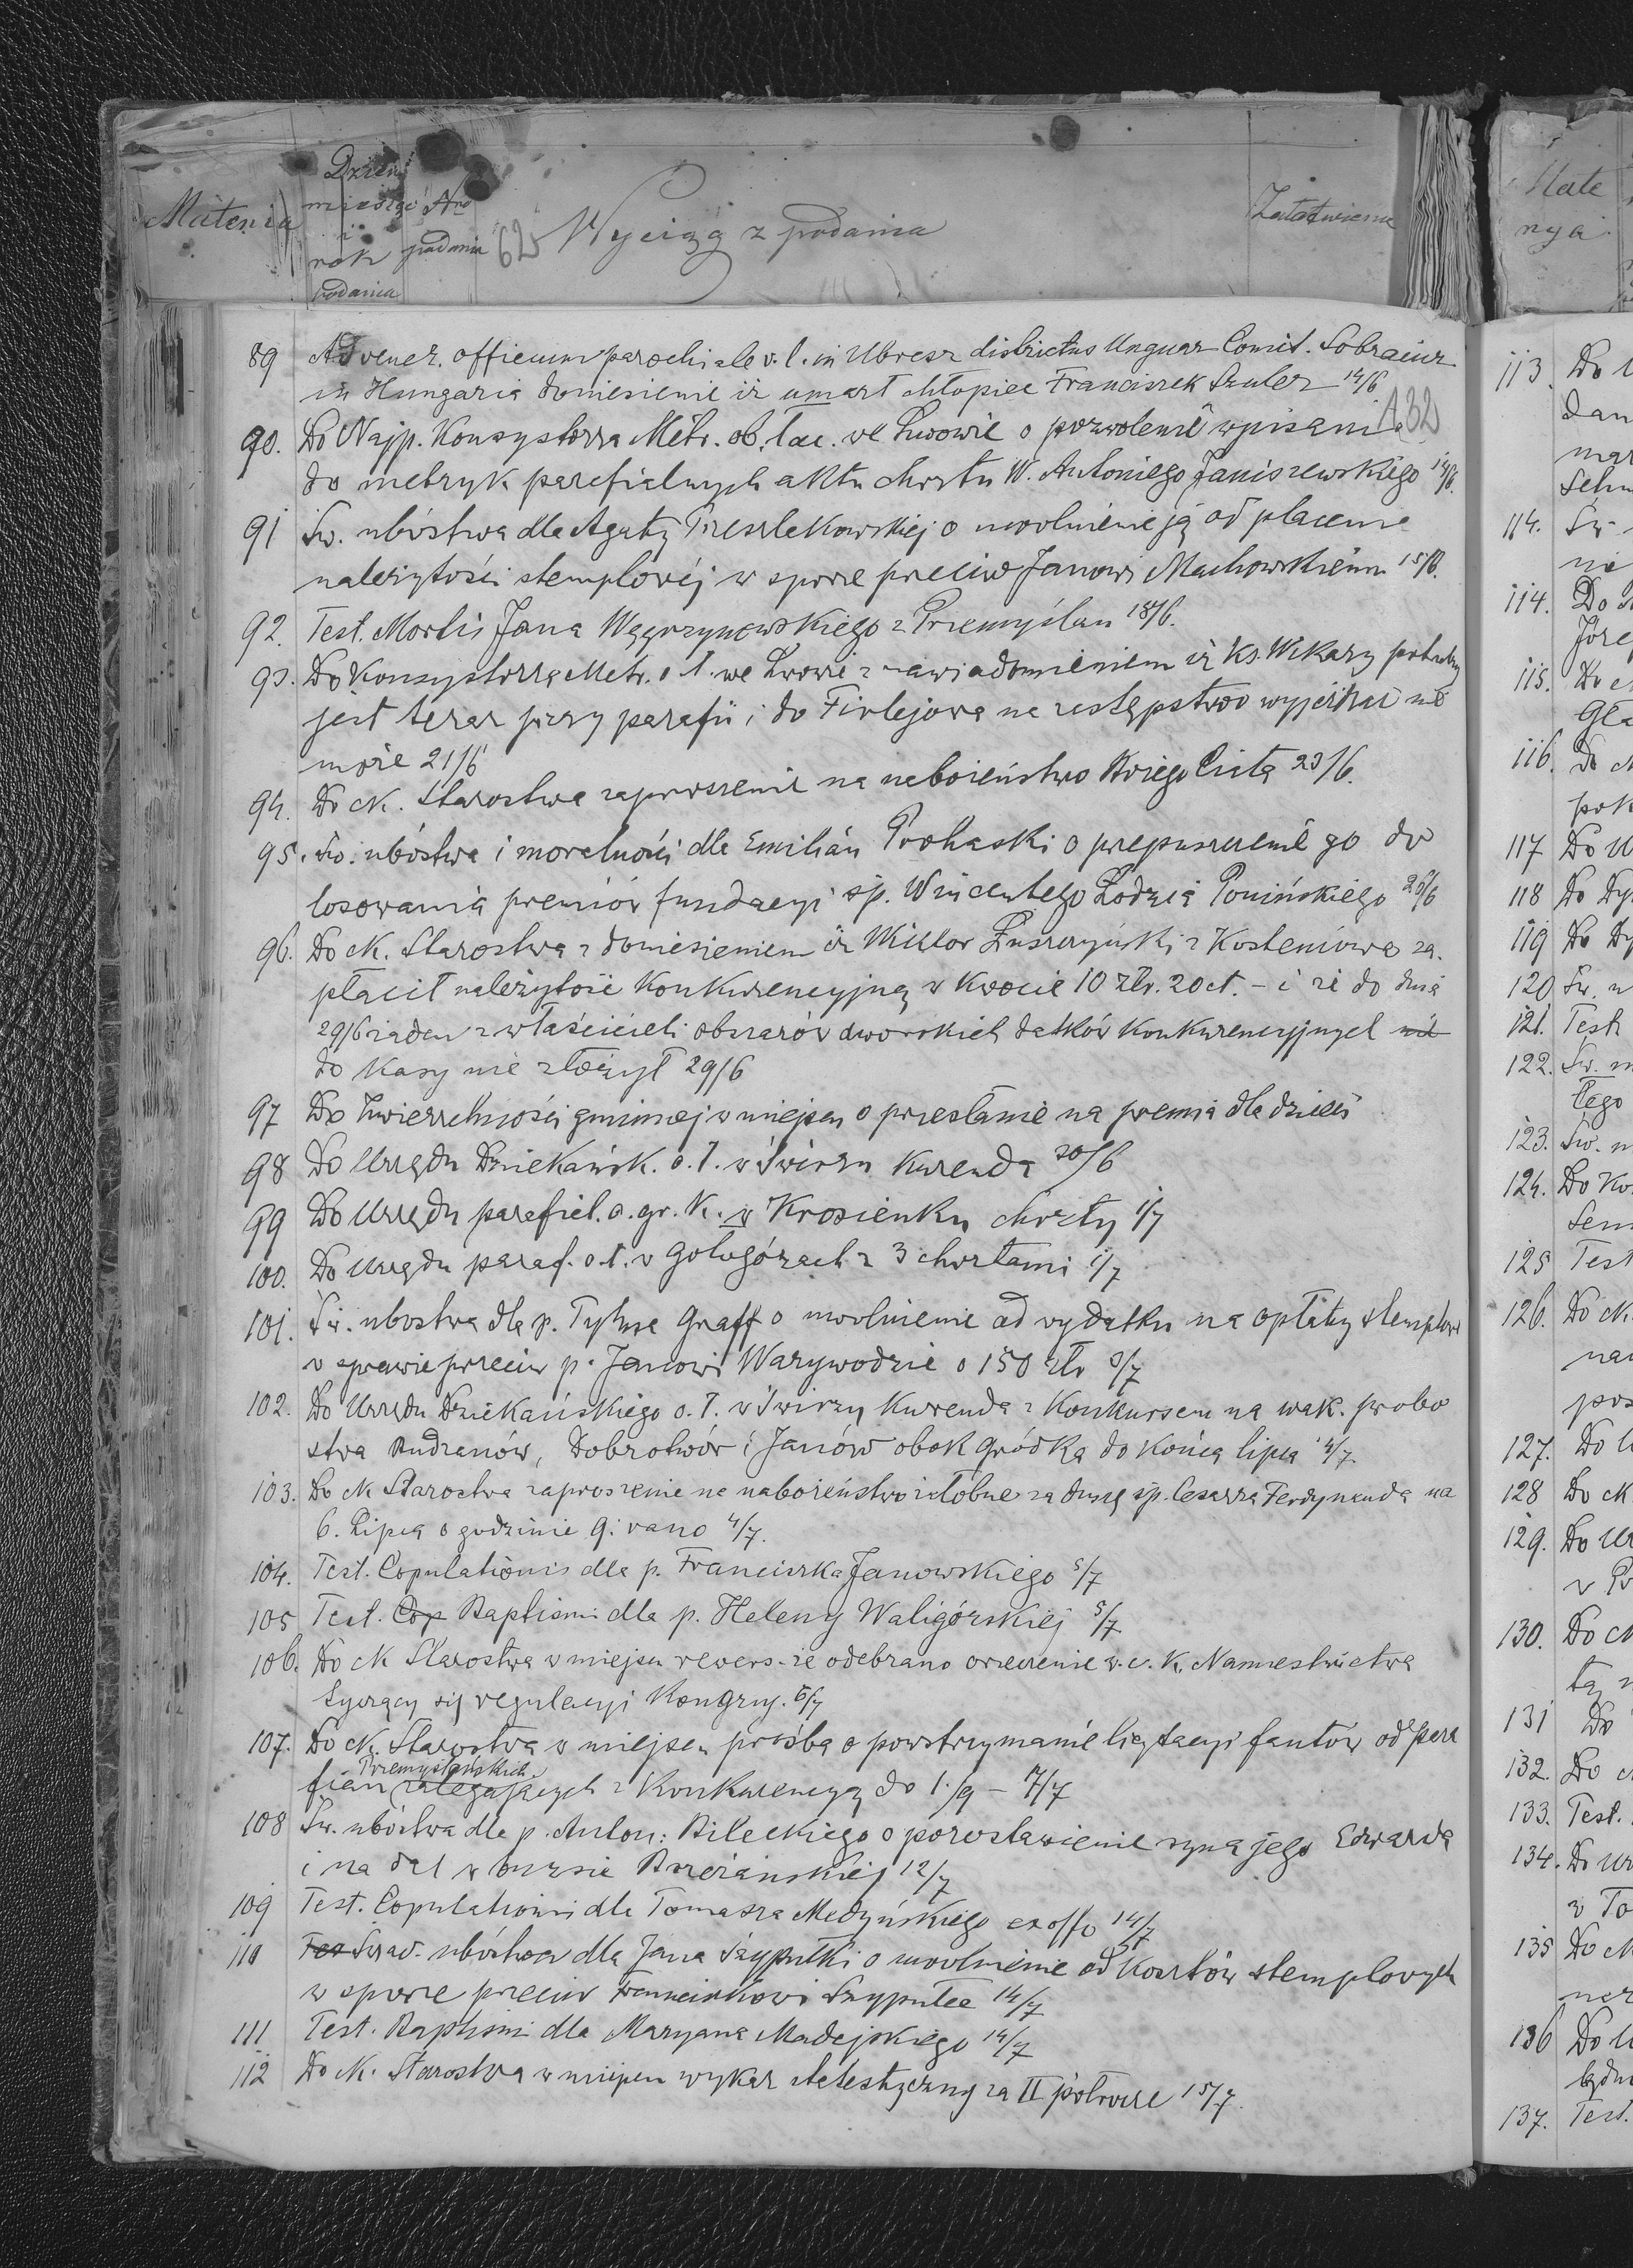 Materia
Dzień
miesiąc
i
rok
podania
Nro
podania
62
Wyciąg z podania
Załatwienie
89 Ad vener. officium parochiale r. l. in Ubresz districtus Unguar Comit. Sobrancz
in Hungaria doniesienie iż umarł chłopiec Franciszek Szuler 14/6
132
90. Do Najp. Konsystorza Metr. ob. łac. we Lwowie o pozwolenie wpisania
do metryk parafialnych aktu chrztu W. Antoniego Janiszewskiego 14/6.
91 Św. ubóstwa dla Agaty Preszlekowskiej o uwolnienie ją od płacenia
należytości stemplowéj w sporze przeciw Janowi Machowskiemu 15/6.
92. Test. Mortis Jana Węgrzynowskiego z Przemyślan 18/6.
93. Do Konsystorza Metr. o. ł. we Lwowie z zawiadomieniem iż Ks. Wikary potrzebny
jest teraz przy parafii i do Firlejowa na zastępstwo wyjechać nie
może 21/6
94. Do ck. Starostwa zaproszenie na nabożeństwo Bożego Ciała 23/6.
95. Św. ubóstwa i moralności dla Emilian Prohaski o przepuszczenié go do
losowania premiów fundacyi śp. Wincentego Łodzia Ponińskiego 26/6
96. Do ck. Starostwa z doniesieniem iż Wiktor Łuszczyński z Kosteniowa za-
płacił należytość konkurencyjną w kwocie 10 złr. 20 ct. - i że do dnia
29/6 żaden z właścicieli obszarów dworskich datków konkurencyjnych nie
do kasy nie złożył 29/6
97 Do Zwierzchności gminnej w miejscu o przesłanie na premia dla dzieci
98 Do Urzędu Dziekańsk. o. ł. w Świrzu Kurenda 30/6
99 Do Urzędu parafial. o. gr. k. w Krosienku chrzty 1/7
100. Do Urzędu paraf. o. ł. w Gołogórach z 3 chrztami 1/7
101. Św. ubostwa dla p. Tyłma Graff o uwolnienie od wydatku na opłaty stemplowe
w sprawie przeciw p. Janowi Warywodzie o 150 złr 3/7
102. Do Urzędu Dziekańskiego o. ł. w Świrzy Kurenda z Konkursem na wak. probo
stwa Budzanów, Dobrotwór i Janów obok Gródka do końca lipca 4/7.
103. Do ck Starostwa zaproszenie na nabożeństwo żałobne za duszę śp. Cesarza Ferdynanda na
6. Lipca o godzinie 9. rano 4/7.
104. Test. Copulationis dla p. Franciszka Janowskiego 5/7
105 Test. Cop Baptismi dla p. Heleny Waligórskiej 5/7
106. Do ck Starostwa w miejscu rewers - że odebrano orzeczenie w. c. k. Namiestnictwa
tyczący się regulacyi Kongruy. 6/7
107. Do ck. Starostwa w miejscu prośba o powstrzymanie licytacyi fantów od para
Przemyślańskich
fian zalegających z Konkurencyą do 1./9 - 7/7
108 Św. ubóstwa dla p. Anton: Bileckiego o pozostawienie syna jego Edwarda
i na dal w bursie Brzeżańskiej 12/7
109 Test. Copulationis dla Tomasza Medyńskiego ex offo 14/7
110 Tes Świad. ubóstwa dla Jana Szypułki o uwolnienie od kosztów stemplowych
w sporze przeciw Franciszkowi Szypułce 14/7
111 Test. Baptismi dla Maryana Madejskiego 14/7
112 Do ck. Starostwa w miejscu wykaz statestyczny za II półrocze 15/7.
Mate
rya
113. Do U
dan
mar
Schu
114. Św.
nie
114. Do
Józe
115. Do c
Gła
116. Do c
pok
117 Do U
118 Do Dy
119 Do Dy
120 Św. u
121. Test
122. Św. m
łego
123. Św. m
124. Do Ko
Sem
125 Test
126. Do ck.
nar
pos
127. Do U
128 Do ck
129. Do Ur
w Po
130. Do ck
tą
131 Do
132. Do c
133. Test.
134. Do Ur
z To
135 Do ck
136 Do U
137. Test.